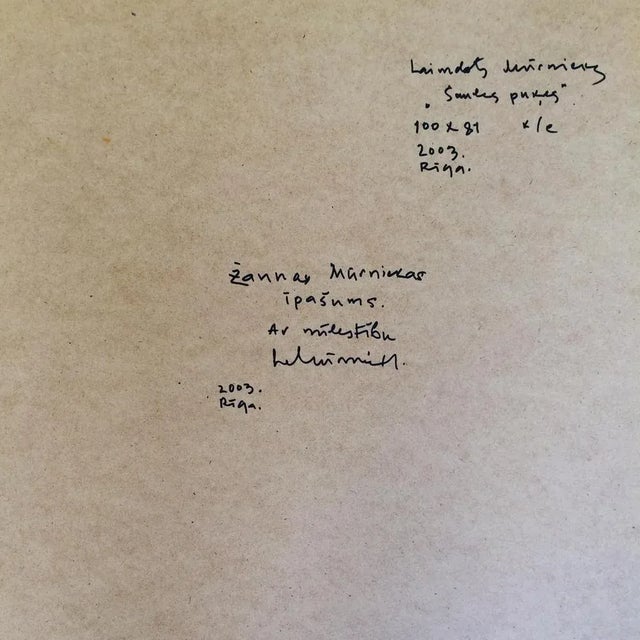 Laimdots Mūrnieks
"Saules puķes"
100 x 81 k/e
2003.
Rīga.
Žannas Mūrniekas
īpašums.
Ar mīlestību
LMūrnieks.
2003.
Rīga.